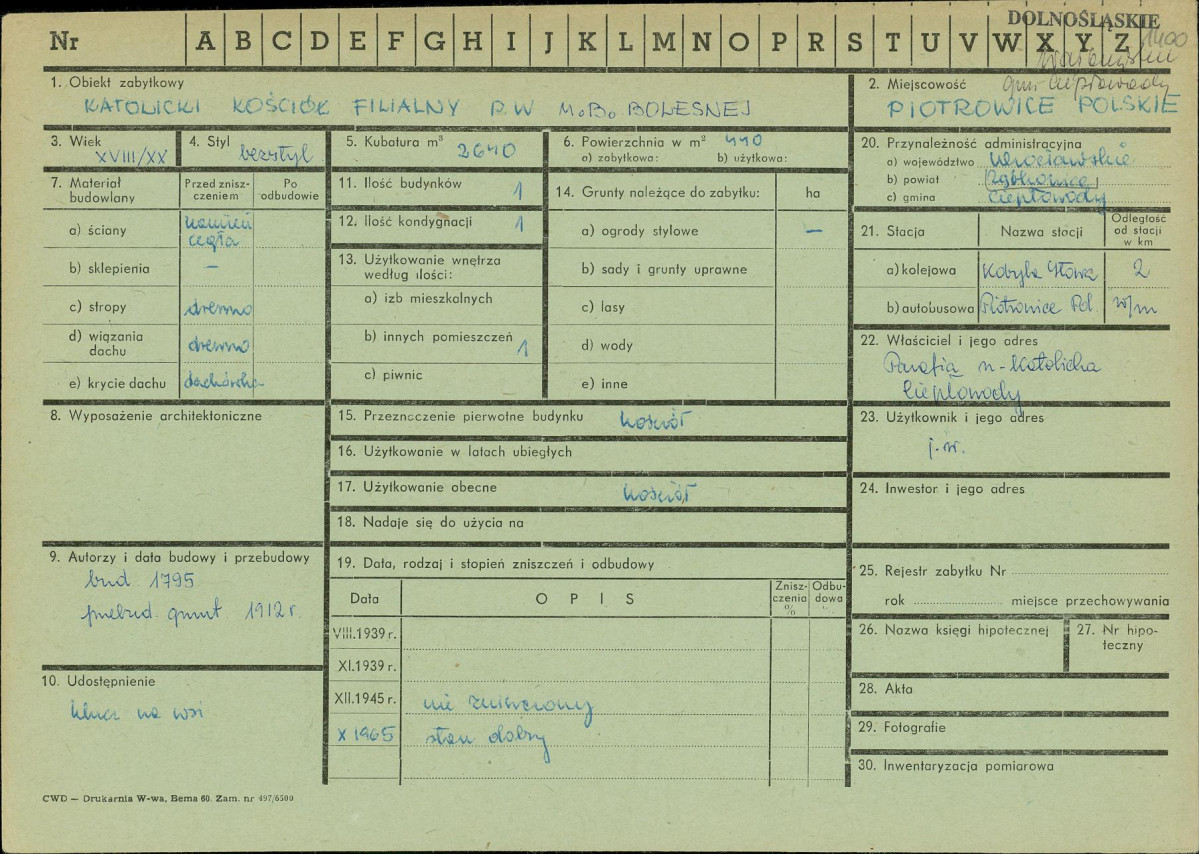 DOLNOŚLĄSKIE
Nr A B C D E F G H I J K L M N O P R S T U V W X Y Z
1400
gm. Ciepłowody
1. Obiekt zabytkowy
KATOLICKI KOŚCIÓŁ FILIALNY P.W M.B. BOLESNEJ
2. Miejscowość
PIOTROWICE POLSKIE
3. Wiek
XVIII/XX
4. Styl
bezstyl
5. Kubatura m³
2640
6. Powierzchnia w m² 440
a) zabytkowa: b) użytkowa:
7. Materiał budowlany
Przed zniszczeniem
Po odbudowie
a) ściany
kamień
cegła
b) sklepienia –
c) stropy drewno
d) wiązania dachu drewno
e) krycie dachu dachówka
8. Wyposażenie architektoniczne
9. Autorzy i data budowy i przebudowy
bud. 1795
przebud. gmnt 1912 r.
10. Udostępnienie
klucz na wsi
11. Ilość budynków 1
12. Ilość kondygnacji 1
13. Użytkowanie wnętrza
według ilości:
a) izb mieszkalnych
b) innych pomieszczeń 1
c) piwnic
14. Grunty należące do zabytku: ha
a) ogrody stylowe –
b) sady i grunty uprawne
c) lasy
d) wody
e) inne
15. Przeznaczenie pierwotne budynku kościół
16. Użytkowanie w latach ubiegłych
17. Użytkowanie obecne kościół
18. Nadaje się do użycia na
19. Data, rodzaj i stopień zniszczeń i odbudowy
Data OPIS Zniszczenia % Odbudowa %
VIII.1939 r.
XI.1939 r.
XII.1945 r. nie zniszczony
X 1965 stan dobry
20. Przynależność administracyjna
a) województwo wrocławskie
b) powiat Ząbkowice
c) gmina Ciepłowody
21. Stacja Nazwa stacji Odległość od stacji w km
a) kolejowa Kobyla Głowa 2
b) autobusowa Piotrowice Pol. w/m
22. Właściciel i jego adres
Parafia rz-Katolicka
Ciepłowody
23. Użytkownik i jego adres
j.w.
24. Inwestor i jego adres
25. Rejestr zabytku Nr
rok miejsce przechowywania
26. Nazwa księgi hipotecznej
27. Nr hipoteczny
28. Akta
29. Fotografie
30. Inwentaryzacja pomiarowa
CWD — Drukarnia W-wa, Bema 60. Zam. nr 497/6500